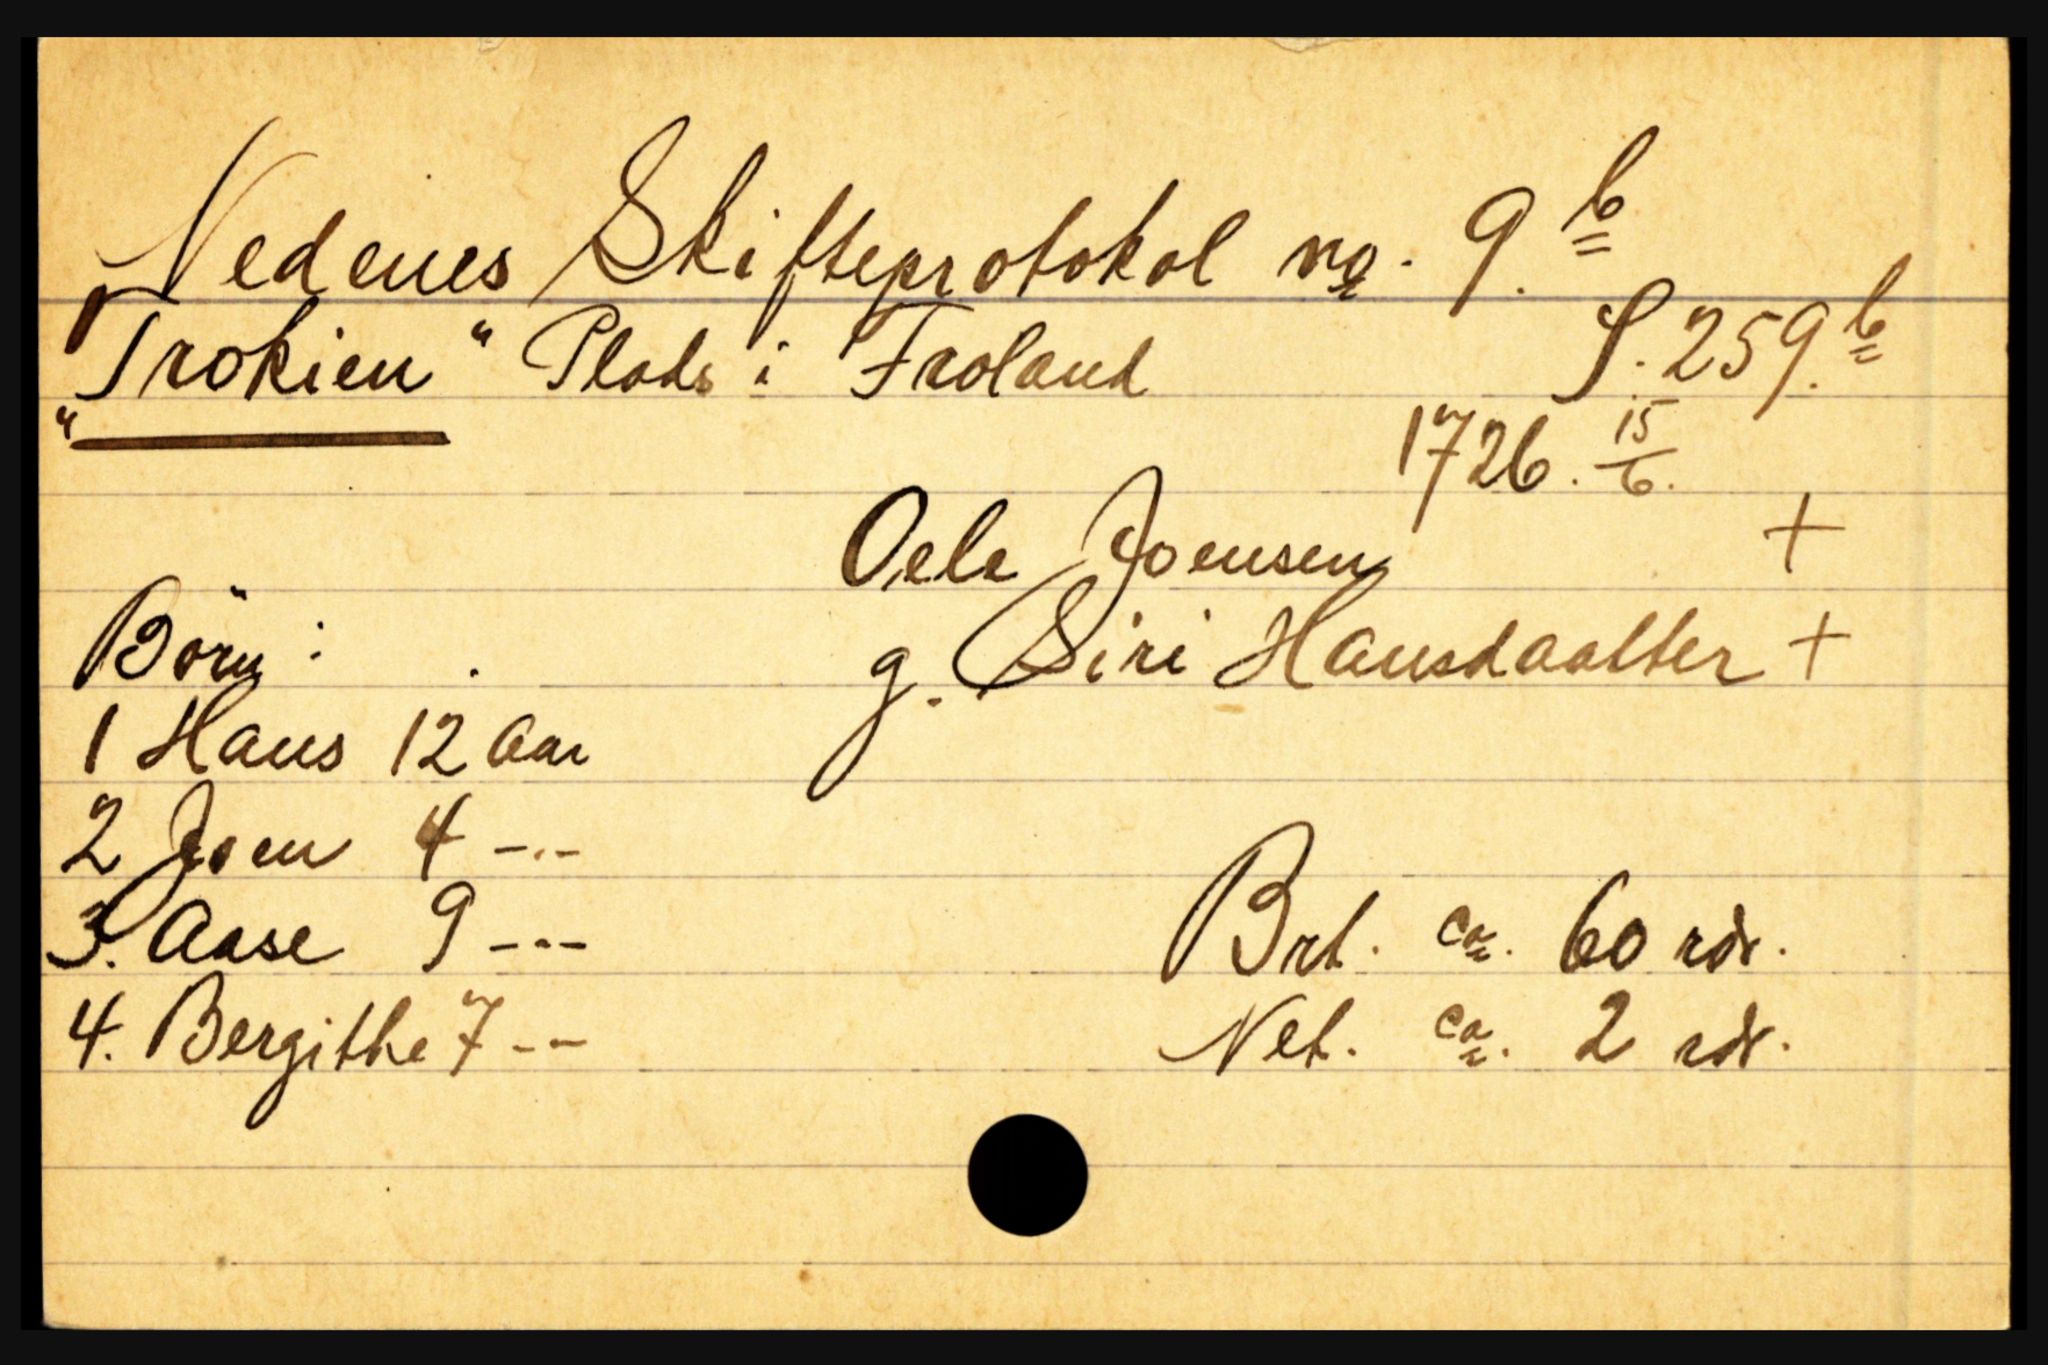 Nedenes Skifteprotokol no. 9.b
"Trokien" Plads i Froland S. 259.b
1726. 15/6.
Oele Joensen +
Börn: g. Siri Hansdaatter +
1 Hans 12 Aar
2 Joen 4 -"-
3. Aase 9 -"- Brt. ca. 60 rdr.
4. Bergithe 7 -"- Net. ca. 2 rdr.